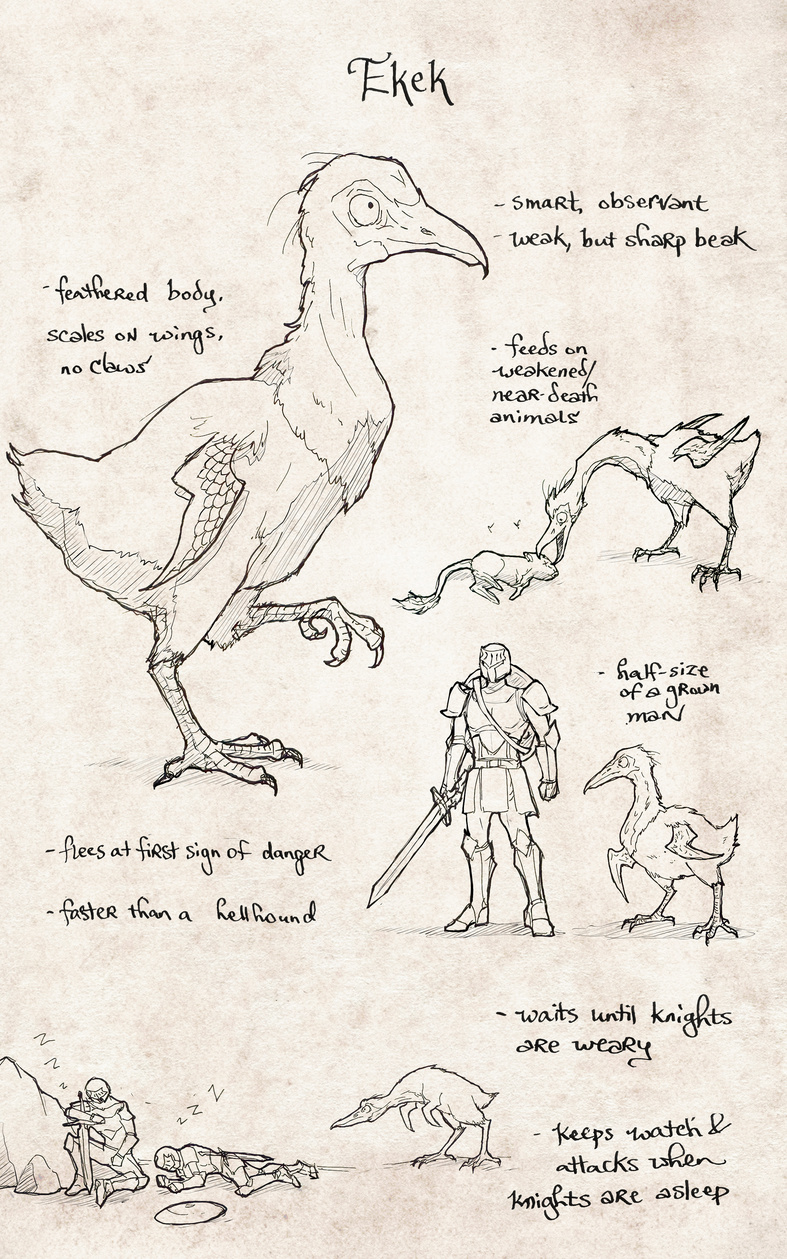 Ekek
- smart, observant
- weak, but sharp beak
- feathered body,
scales on wings,
no claws
- feeds on
weakened/
near-death
animals
- half-size
of a grown
man
- flees at first sign of danger
- faster than a hellhound
- waits until knights
are weary
z z z
z z z
- keeps watch &
attacks when
knights are asleep